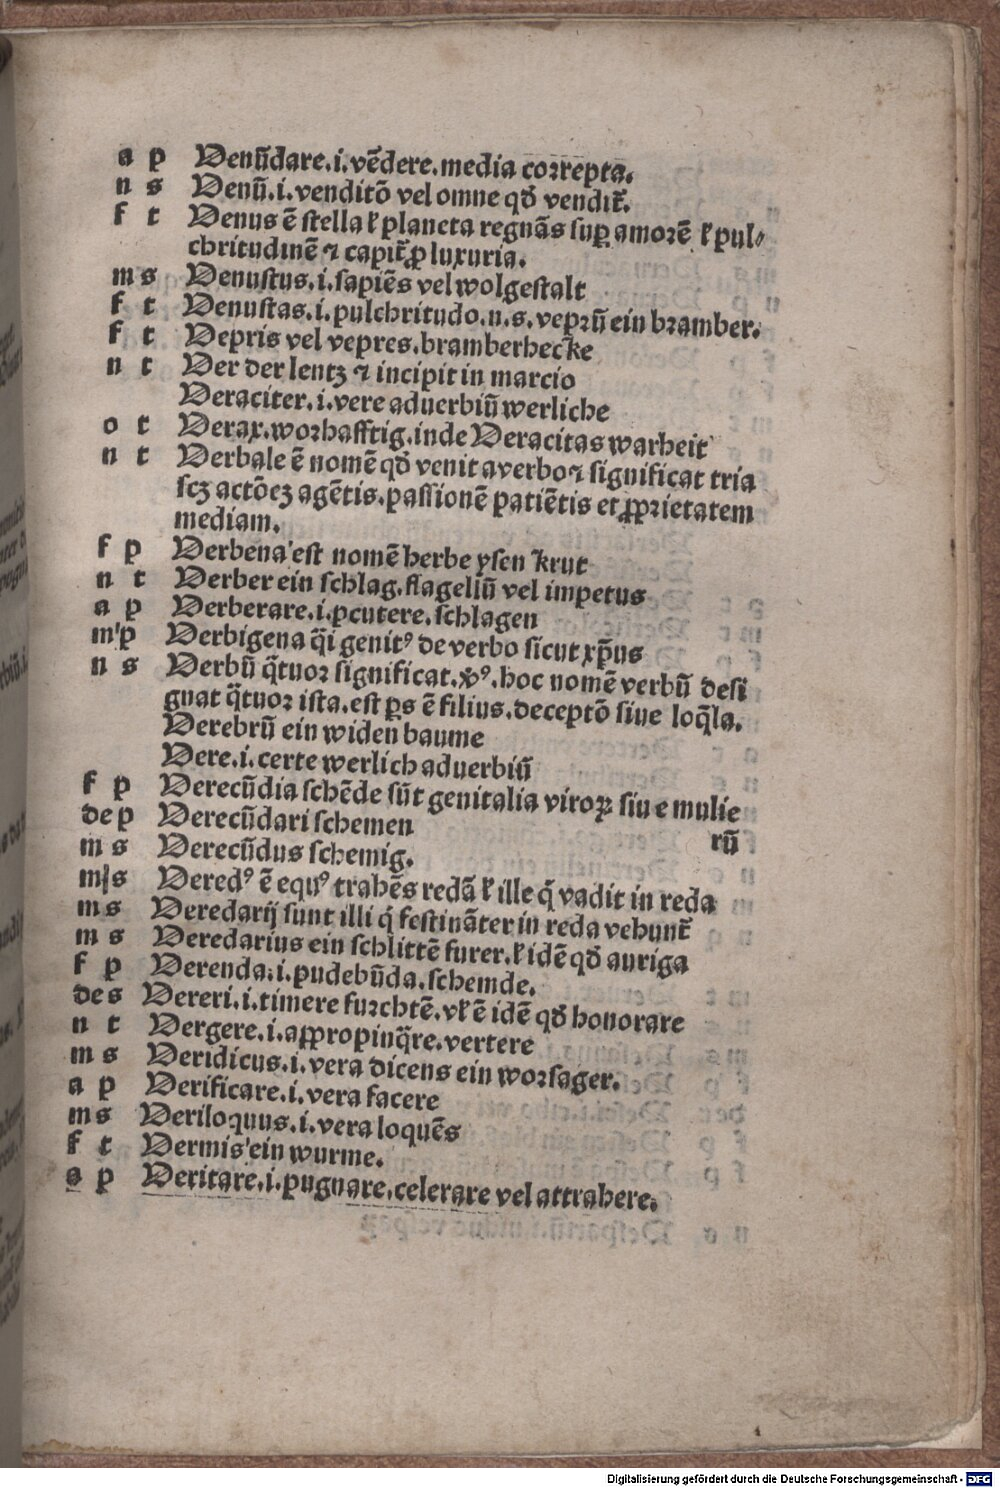 a p Venūdare.i.vēdere.media correpta.
n s Venū.i.venditō vel omne qď vendit᷑.
f t Venus ē stella ꝉ planeta regnās sup amorē ꝉ pul⸗
chritudinē ⁊ capit᷑ ꝓ luxuria.
m s Venustus.i.sapiēs vel wolgestalt
f t Venustas.i.pulchritudo.n.s.veprū ein bramber.
f t Vepris vel vepres.bramberhecke
n t Ver der lentz ⁊ incipit in marcio
Veraciter.i.vere aduerbiū werliche
o t Verax.worhafftig.inde Veracitas warheit
n t Verbale ē nomē qď venit a verbo ⁊ significat tria
scꝫ actōeꝫ agētis.passionē patiētis et ꝓprietatem
mediam.
f p Verbena est nomē herbe ysen krut
n t Verber ein schlag.flagellū vel impetus
a p Verberare.i.ꝑcutere.schlagen
m p Verbigena q̄i genitꝰ de verbo sicut xp̄us
n s Verbū q̄tuor significat.ꝟꝰ.hoc nomē verbū desi
gnat q̄tuor ista.est ꝑs ē filius.deceptō siue loq̄la.
Verebrū ein widen baume
Vere.i.certe werlich aduerbiū
f p Verecūdia schēde sūt genitalia viroꝝ siue mulie
dep Verecūdari schemen rū
m s Verecūdus schemig.
m s Veredꝰ ē equꝰ trahēs redā ꝉ ille q̇ vadit in reda
m s Veredarij sunt illi q̇ festināter in reda vehunt᷑
m s Veredarius ein schlittē furer.ꝉ idē qď auriga
f p Verenda.i.pudebūda.schemde.
des Vereri.i.timere furchtē.vꝉ ē idē qď honorare
n t Vergere.i.appropinq̄re.vertere
m s Veridicus.i.vera dicens ein worsager.
a p Verificare.i.vera facere
m s Veriloquus.i.vera loquēs
f t Vermis ein wurme.
a p Veritare.i.pugnare.celerare vel attrahere.
Digitalisierung gefördert durch die Deutsche Forschungsgemeinschaft - DFG